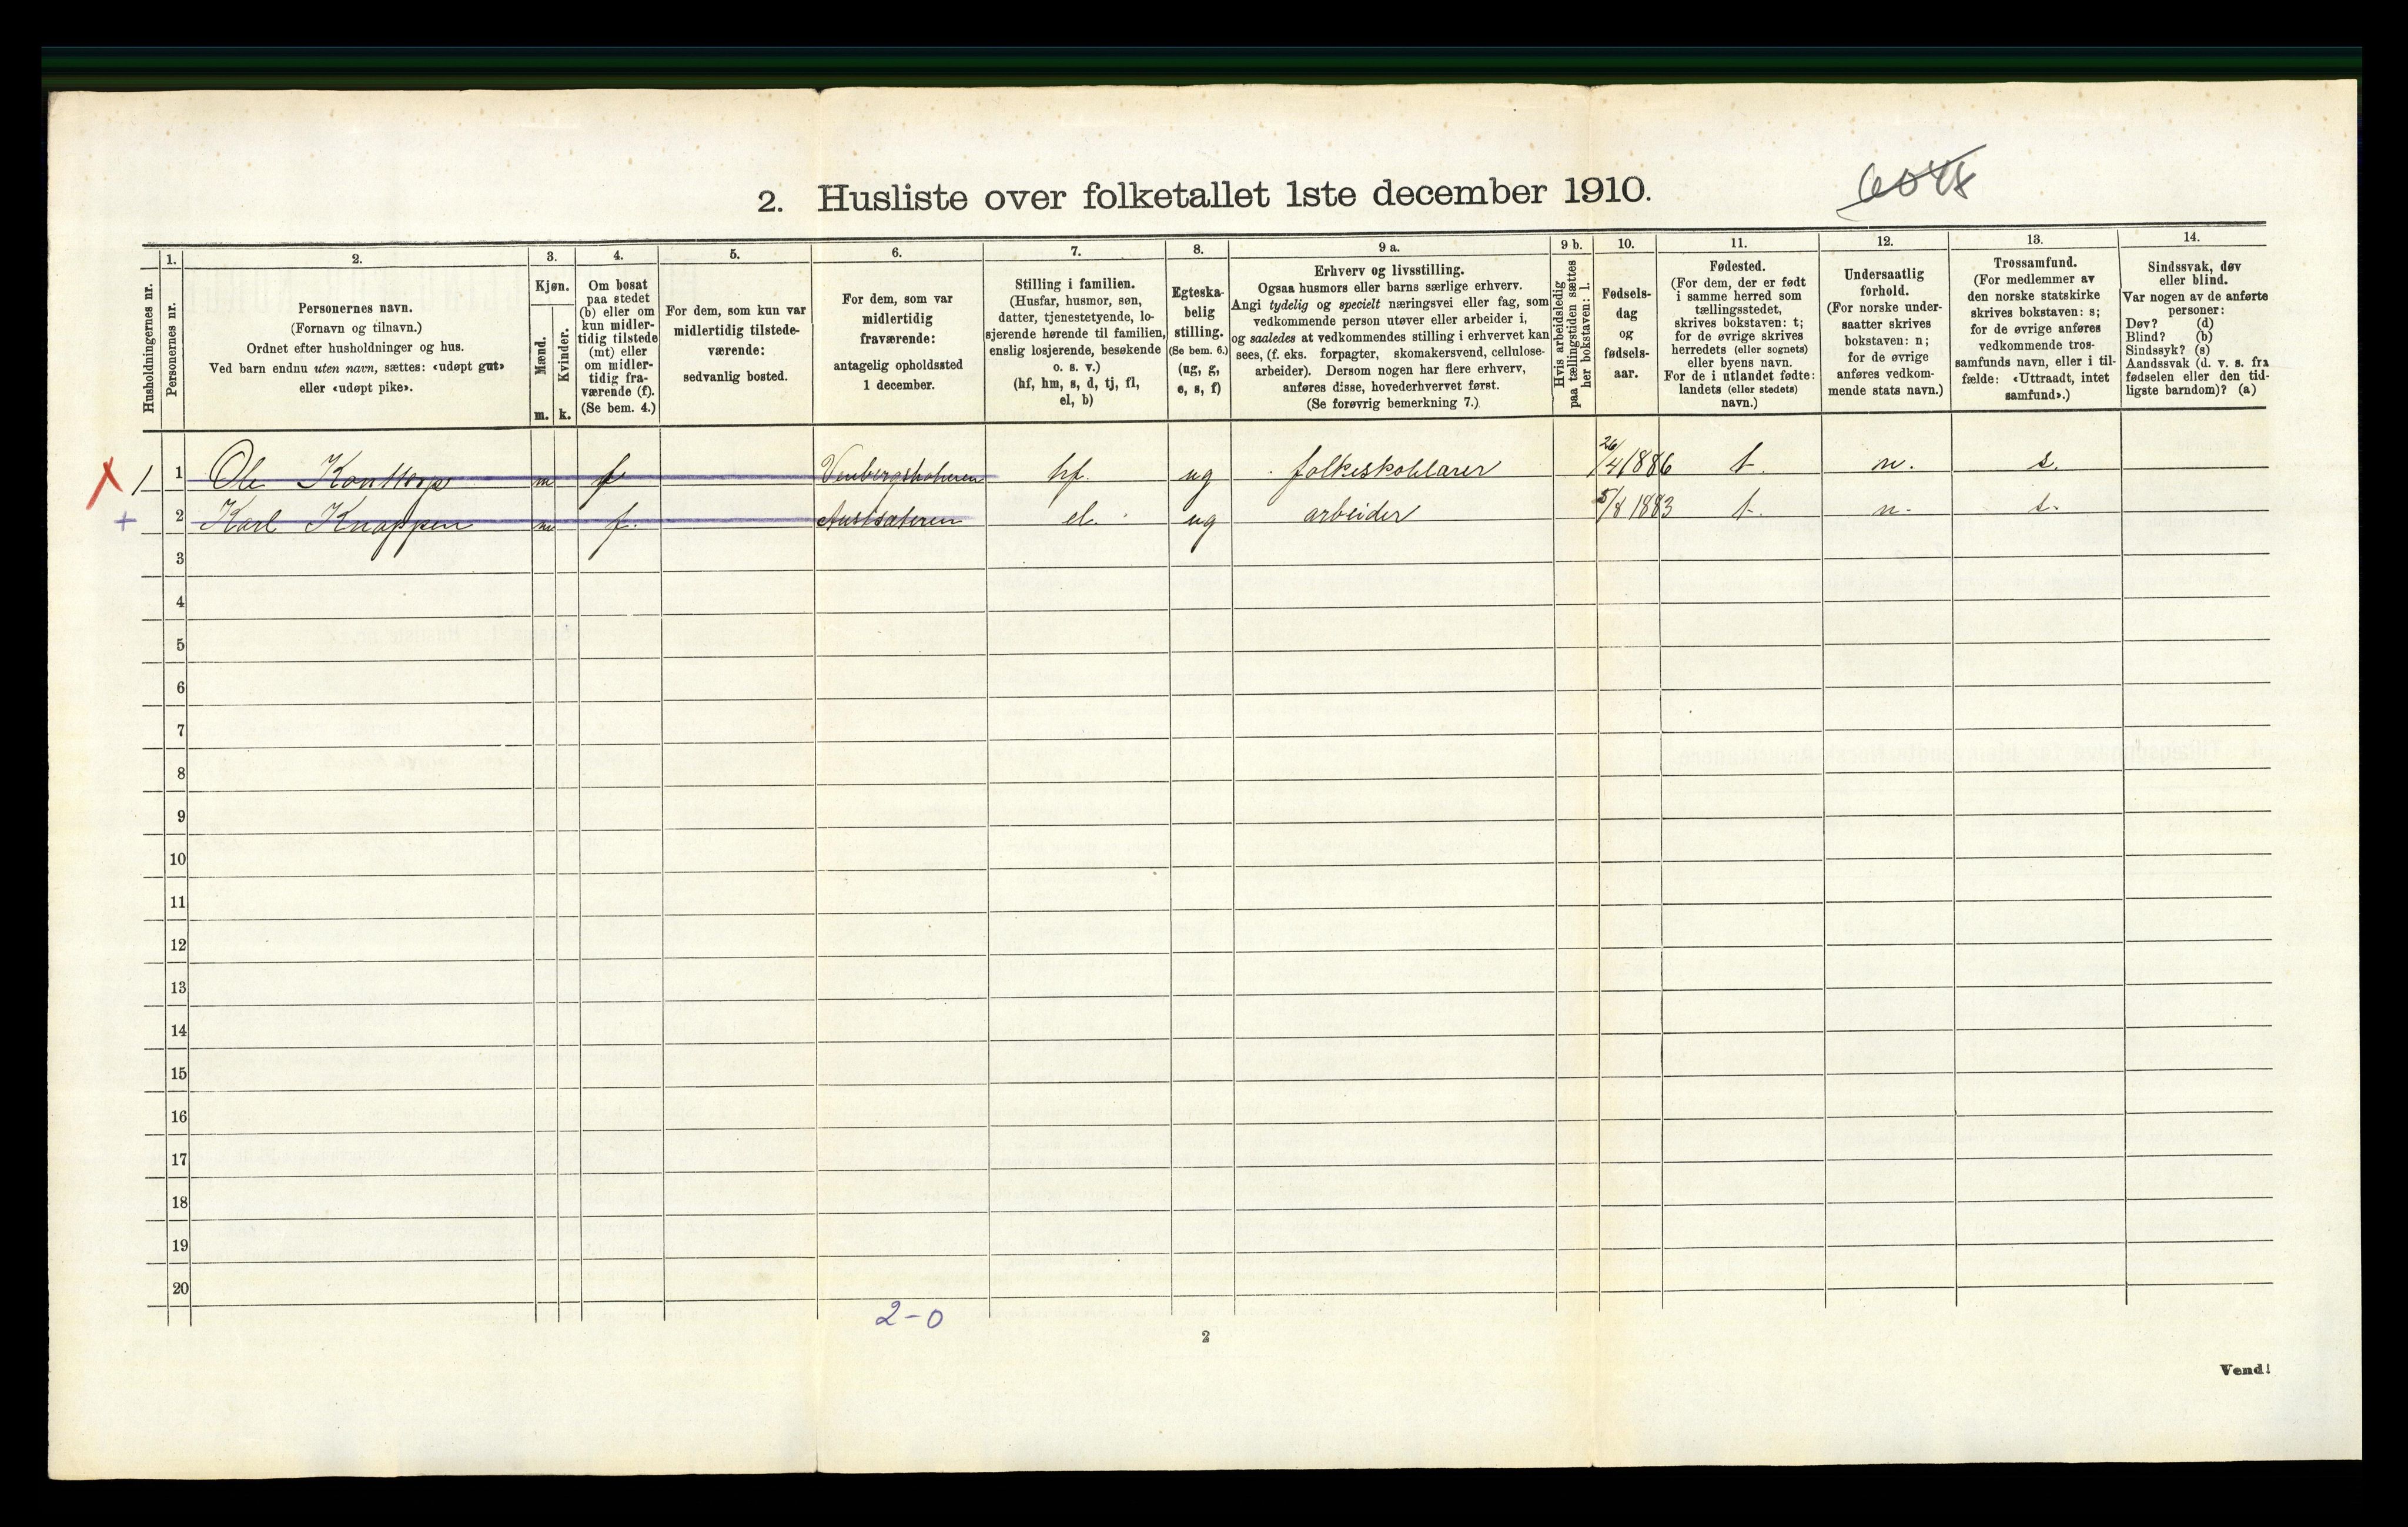 2. Husliste over folketallet 1ste december 1910.
1. 2. 3. 4. 5. 6. 7. 8. 9 a. 9 b. 10. 11. 12. 13. 14.
Husholdningernes nr.
Personernes nr.
Personernes navn.
(Fornavn og tilnavn.)
Ordnet efter husholdninger og hus.
Ved barn endnu uten navn, sættes: «udøpt gut»
eller «udøpt pike».
Kjøn.
Mænd.
Kvinder.
m. k.
Om bosat
paa stedet
(b) eller om
kun midler-
tidig tilstede
(mt) eller
om midler-
tidig fra-
værende (f).
(Se bem. 4.)
For dem, som kun var
midlertidig tilstede-
værende:
sedvanlig bosted.
For dem, som var
midlertidig
fraværende:
antagelig opholdssted
1 december.
Stilling i familien.
(Husfar, husmor, søn,
datter, tjenestetyende, lo-
sjerende hørende til familien,
enslig losjerende, besøkende
o. s. v.)
(hf, hm, s, d, tj, fl,
el, b)
Egteska-
belig
stilling.
(Se bem. 6.)
(ug, g,
e, s, f)
Erhverv og livsstilling.
Ogsaa husmors eller barns særlige erhverv.
Angi tydelig og specielt næringsvei eller fag, som
vedkommende person utøver eller arbeider i,
og saaledes at vedkommendes stilling i erhvervet kan
sees, (f. eks. forpagter, skomakersvend, cellulose-
arbeider). Dersom nogen har flere erhverv,
anføres disse, hovederhvervet først.
(Se forøvrig bemerkning 7.)
Hvis arbeidsledig
paa tællingstiden sættes
her bokstaven: l.
Fødsels-
dag
og
fødsels-
aar.
Fødested.
(For dem, der er født
i samme herred som
tællingsstedet,
skrives bokstaven: t;
for de øvrige skrives
herredets (eller sognets)
eller byens navn.
For de i utlandet fødte:
landets (eller stedets)
navn.)
Undersaatlig
forhold.
(For norske under-
saatter skrives
bokstaven: n;
for de øvrige
anføres vedkom-
mende stats navn.)
Trossamfund.
(For medlemmer av
den norske statskirke
skrives bokstaven: s;
for de øvrige anføres
vedkommende tros-
samfunds navn, eller i til-
fælde: «Uttraadt, intet
samfund».)
Sindssvak, døv
eller blind.
Var nogen av de anførte
personer:
Døv? (d)
Blind? (b)
Sindssyk? (s)
Aandssvak (d. v. s. fra
fødselen eller den tid-
ligste barndom)? (a)
X 1 1 Ole m f hf. ug folkeskolelærer 26/4 1886 t. n. s.
+ 2 Karl Knappen m f. Austsæteren el. ug arbeider 5/8 1883 t. n. s.
3
4
5
6
7
8
9
10
11
12
13
14
15
16
17
18
19
20
2-0
2
Vend!